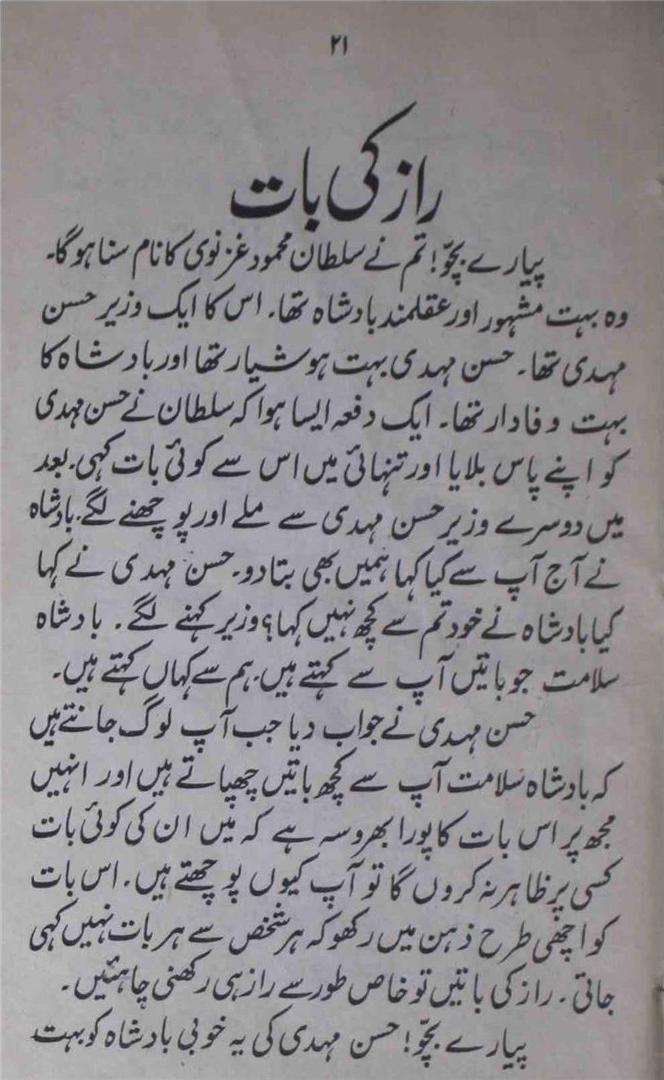 ۲۱
راز کی بات
پیارے بچّو! تم نے سلطان محمود غزنوی کا نام سنا ہوگا۔
وہ بہت مشہور اور عقلمند بادشاہ تھا۔ اس کا ایک وزیر حسن
مہدی تھا۔ حسن مہدی بہت ہوشیار تھا اور بادشاہ کا
بہت وفادار تھا۔ ایک دفعہ ایسا ہوا کہ سلطان نے حسن مہدی
کو اپنے پاس بلایا اور تنہائی میں اس سے کوئی بات کہی۔ بعد
میں دوسرے وزیر حسن مہدی سے ملے اور پوچھنے لگے۔ بادشاہ
نے آج آپ سے کیا کہا ہمیں بھی بتا دو۔ حسن مہدی نے کہا
کیا بادشاہ نے خود تم سے کچھ نہیں کہا؟ وزیر کہنے لگے۔ بادشاہ
سلامت جو باتیں آپ سے کہتے ہیں۔ ہم سے کہاں کہتے ہیں۔
حسن مہدی نے جواب دیا جب آپ لوگ جانتے ہیں
کہ بادشاہ سلامت آپ سے کچھ باتیں چھپاتے ہیں اور انہیں
مجھ پر اس بات کا پورا بھروسہ ہے کہ میں ان کی کوئی بات
کسی پر ظاہر نہ کروں گا تو آپ کیوں پوچھتے ہیں۔ اس بات
کو اچھی طرح ذہن میں رکھو کہ ہر شخص سے ہر بات نہیں کہی
جاتی۔ راز کی باتیں تو خاص طور سے راز ہی رکھنی چاہئیں۔
پیارے بچّو! حسن مہدی کی یہ خوبی بادشاہ کو بہت